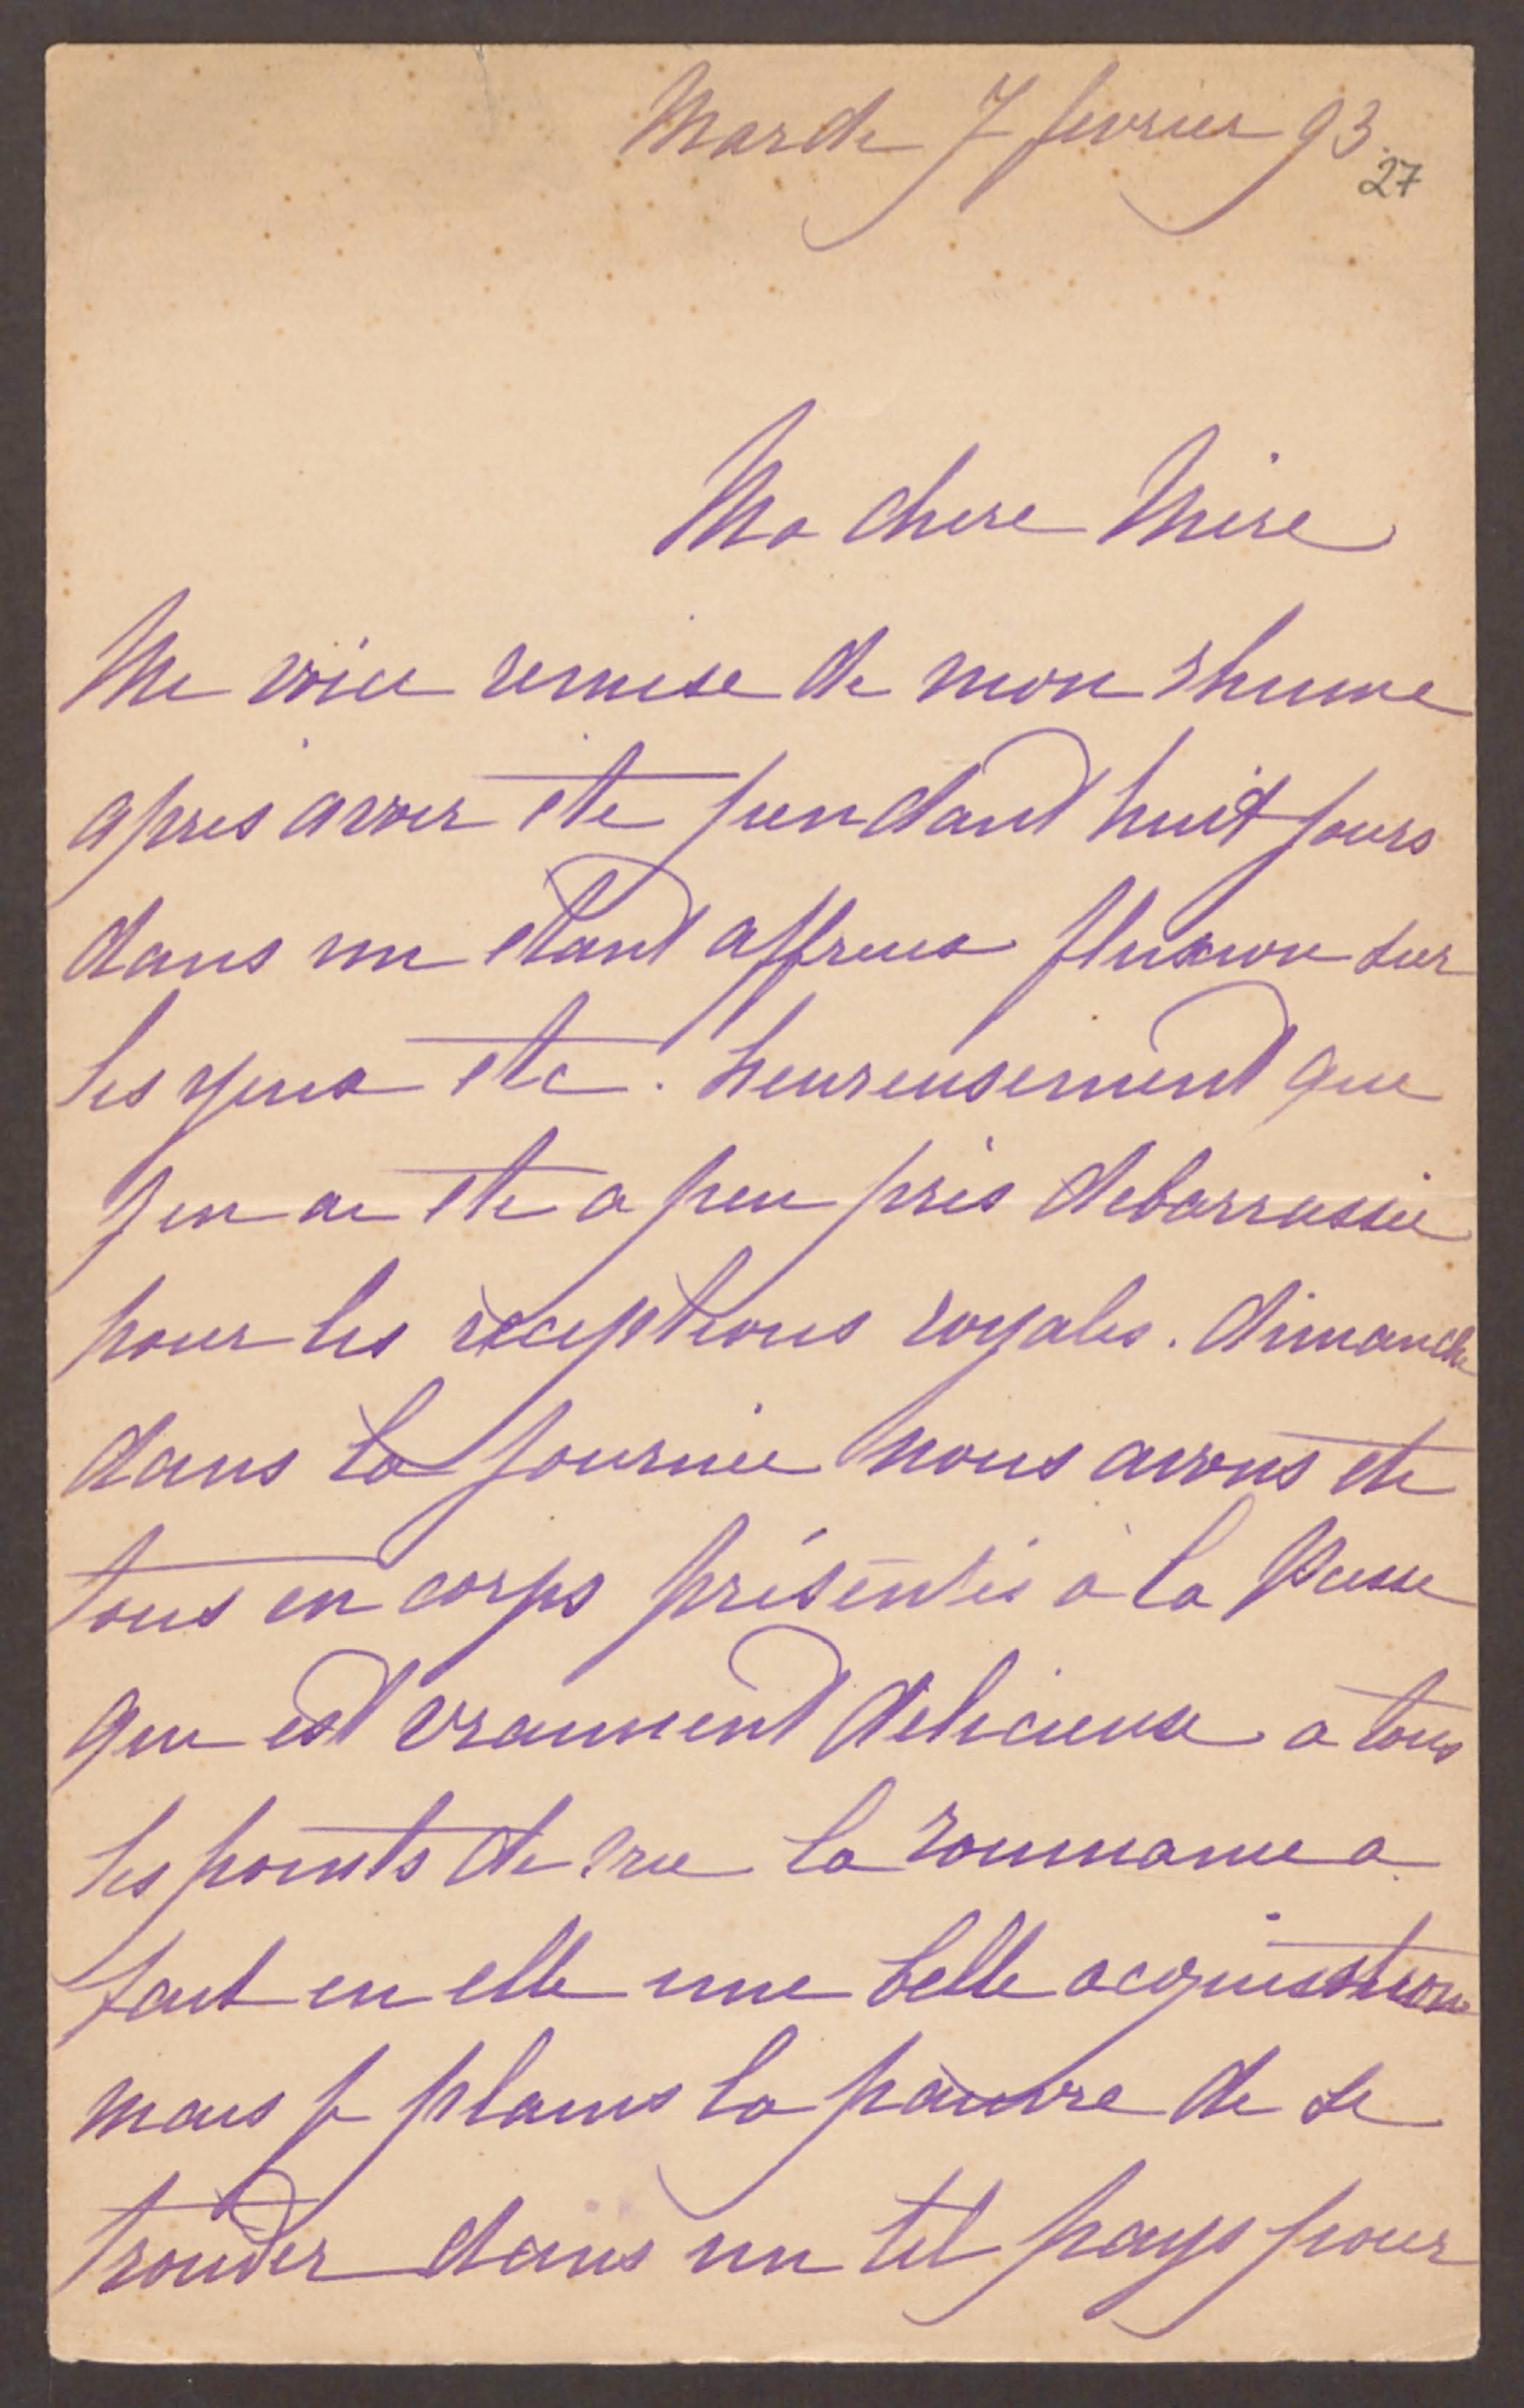 Mardi 7 fevrier 93.
27
Ma chere Mère
Me voici remise de mon rhume
apres avoir été pendant huit jours
dans un etant affreux fluxion sur
les yeux etc. heureusement que
j'en ai ete a peu près debarrassée
pour les réceptions royales. dimanche
dans la journée nous avons ete
tous en corps présentés à la Pcesse
qui est vraiment delicieuse a tous
les points de vue la roumanie a
fait en elle une belle acquisition
mais je plains la pauvre de se
trouver dans un tel pays pour